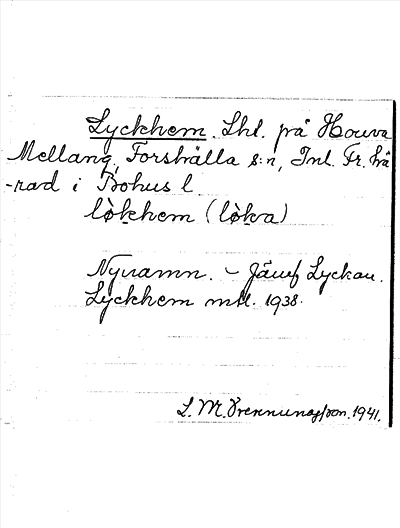 Lyckhem. Lhl. på Houva
Mellang, Forshälla s:n, Inl. Fr. hä
-rad i Bohus l.
lòkhem (lòka)
Nynamn. – Jämf Lyckan.
Lyckhem mtl. 1938.
L. M. 1941.